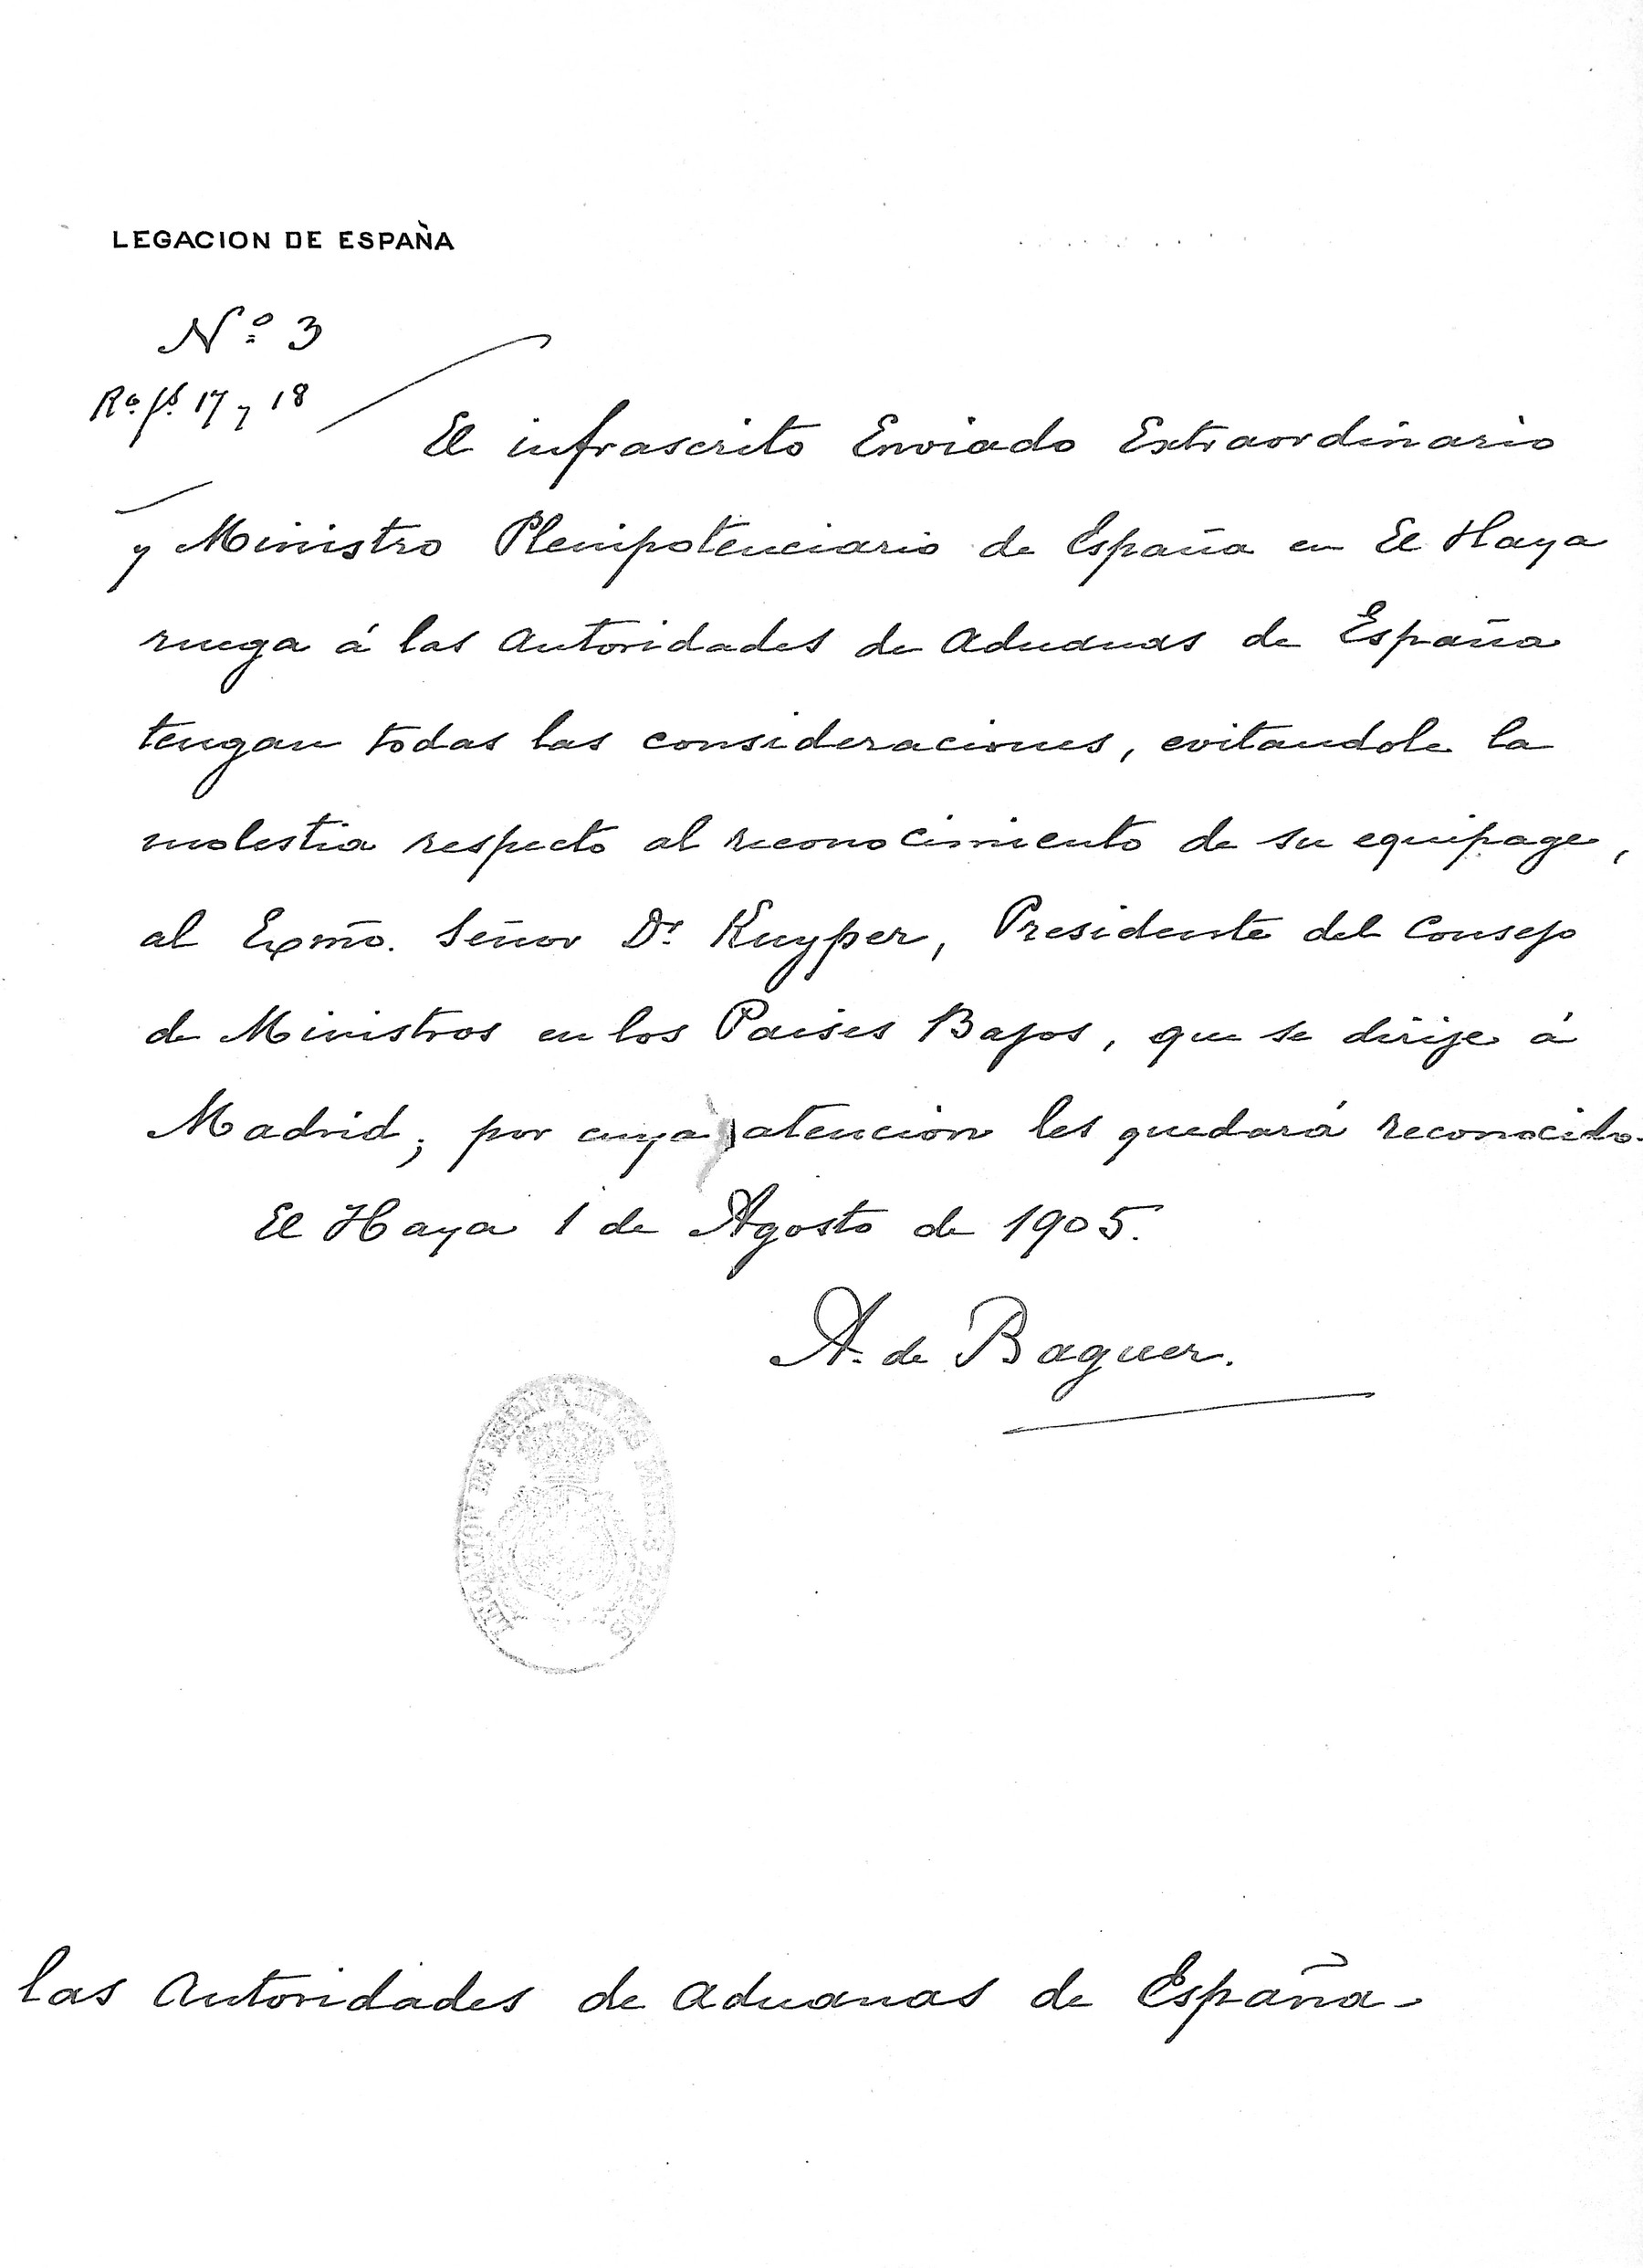 LEGACION DE ESPAÑA
Nº 3
Rº fs. 17 y 18
El infrascrito Enviado Extraordinario
y Ministro Plenipotenciario de España en El Haya
ruega á las Autoridades de Aduanas de España
tengan todas las consideraciones, evitandole la
molestia respecto al reconocimiento de su equipage,
al Exmõ. Señor Dr. Kuyper, Presidente del Consejo
de Ministros en los Paises Bajos, que se dirije á
Madrid; por cuya atencion les quedará reconocido.
El Haya 1 de Agosto de 1905.
A. de Baguer.
LEGACION DE ESPAÑA EN LOS PAISES BAJOS
las Autoridades de Aduanas de España-